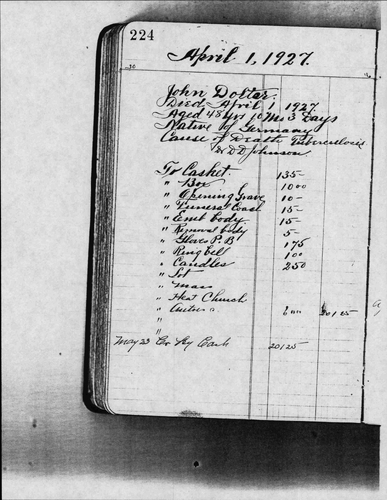 224
April 1, 1927.
John Dolter
Died April 1 1927
Aged 48 yrs 10 Mo 3 Days
Native of Germany
Cause of Death Tuberculosis
Dr D D Johnson
To Casket 135-
" Box 10 00
" Opening Grave 10-
" Funeral Coach 15-
" Emb body 15-
" Removal body 5-
" Gloves P. B 1 75
" Ring bell 1 00
" Candles 2 50
" Lot
" Mass
" Heat Church
" 6 00 201 25
"
"
May 23 Cr By Cash 201 25